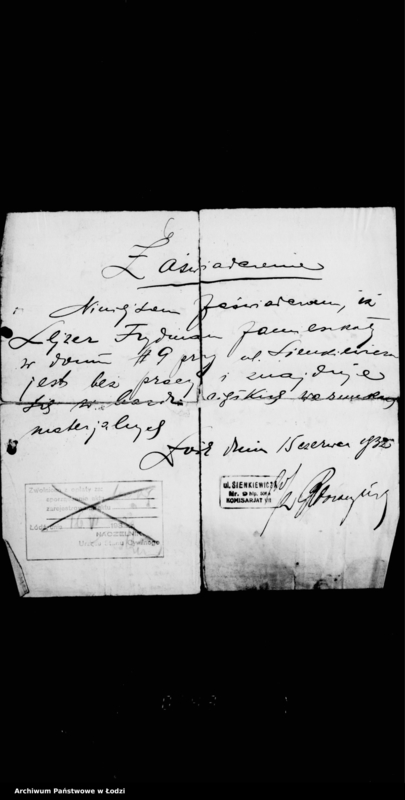 Zaświadczenie
Niniejszem zaświadczam, iż
Lejzer Frydman zamieszkały
w domu № 9 przy ul. Sienkiewicza
jest bez pracy i znajduje
się w bardzo ciężkich warunkach
materjalnych
Łódź dnia 15 czerwca 1932
ul. SIENKIEWICZA
Nr. 9
KOMISARJAT VII
Archiwum Państwowe w Łodzi